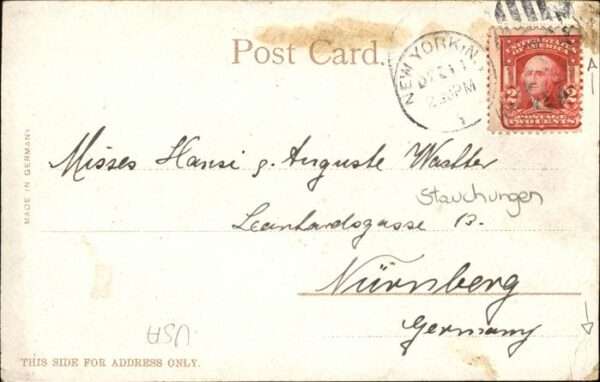 Post Card.
NEW YORK, N.
DEC 11
2 PM
UNITED STATES
OF AMERICA
2 2
POSTAGE
TWO CENTS
MADE IN GERMANY
Misses Hansi & Auguste Wachter
Stauchungen
Leonhardsgasse 13.
Nürnberg
Germany
USA
THIS SIDE FOR ADDRESS ONLY.